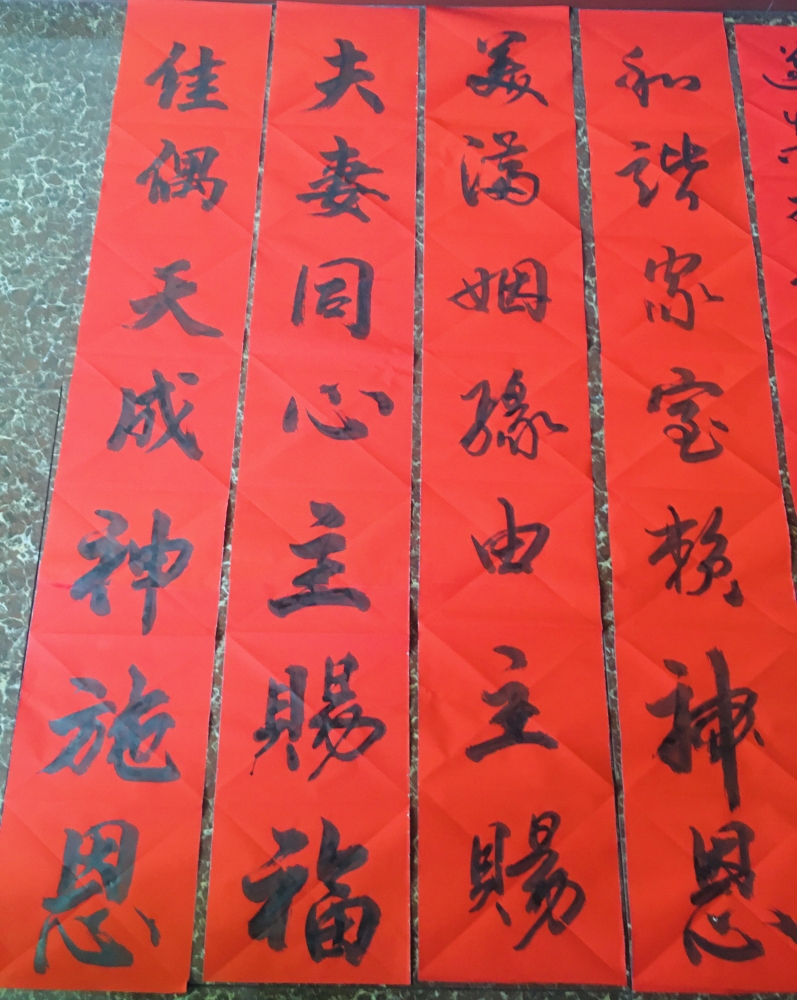 和諧家室赖神恩
美满姻缘由主赐
夫妻同心主賜福
佳偶天成神施恩